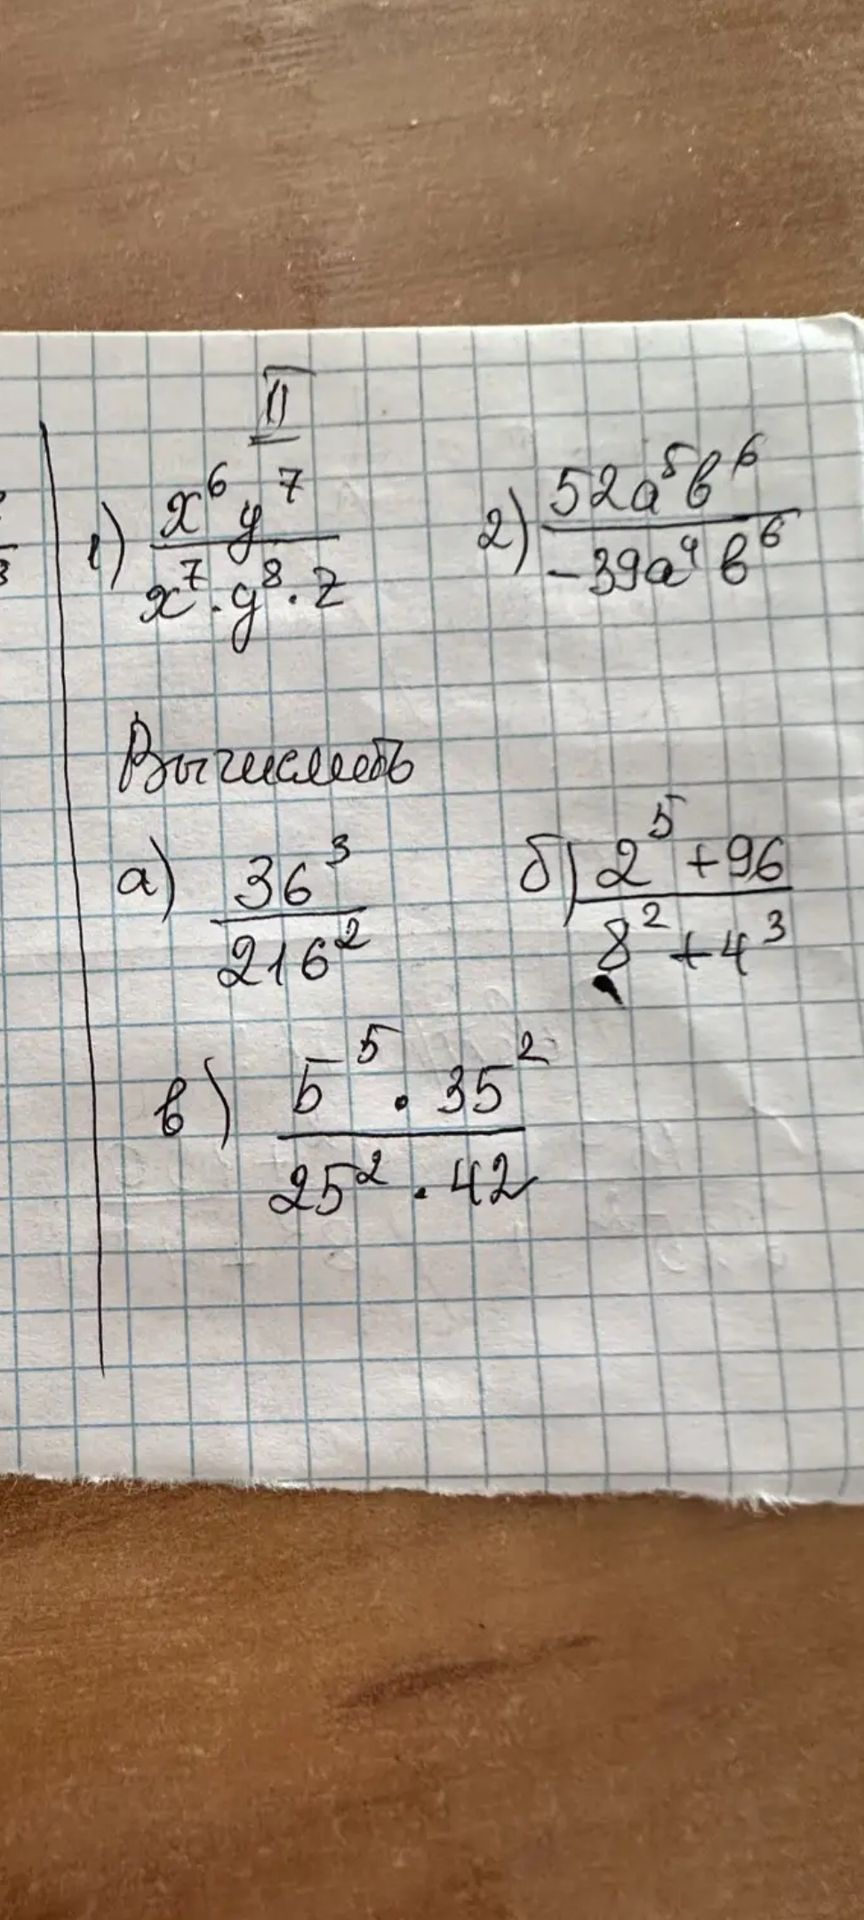 II
1) x⁶y⁷ / x⁷·y⁸·z 2) 52a⁵b⁶ / -39a⁴b⁶
Вычислить
а) 36³ / 216² б) 2⁵+96 / 8²+4³
в) 5⁵·35² / 25²·42
3